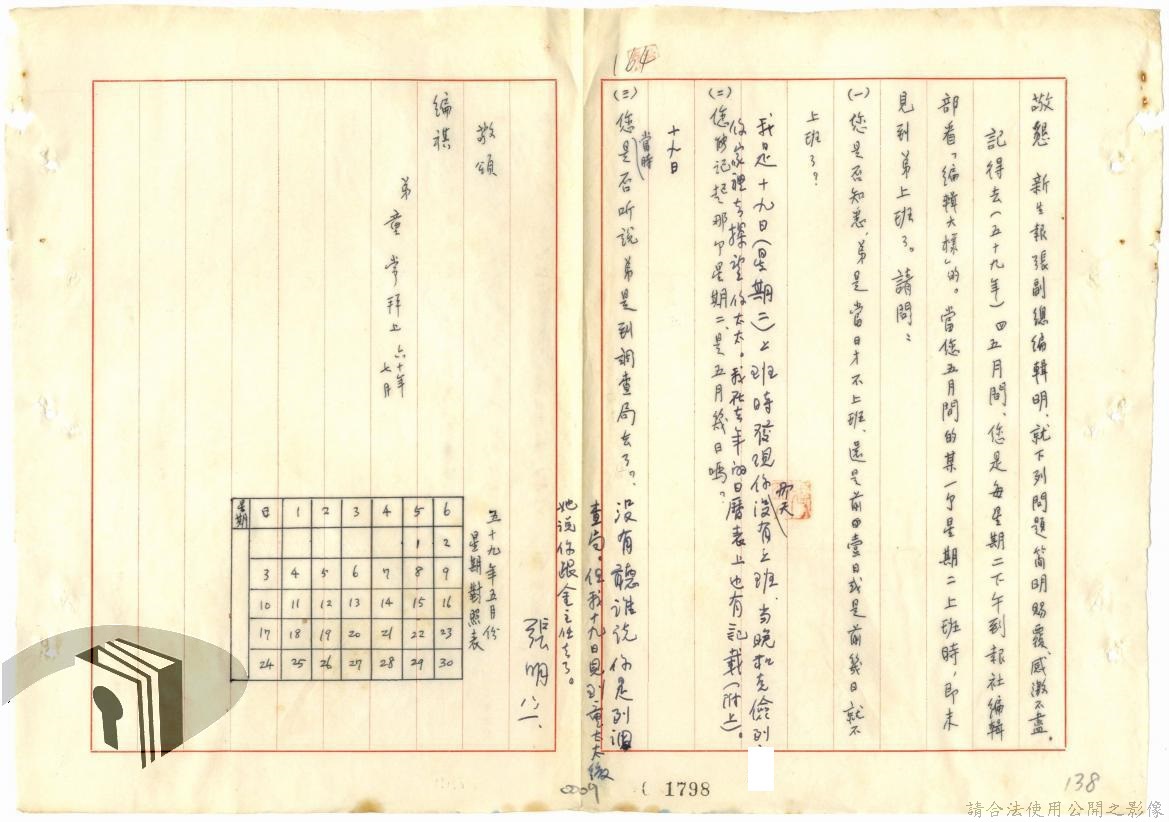 164
敬懇 新生報張副總編輯明、就下列問題簡明賜覆、感激不盡。
記得去(五十九年)四五月間、您是每星期二下午到報社編輯
部看「編輯大樣」的。當您五月間的某一個星期二上班時,即未
見到弟上班了。請問:
(一)您是否知悉、弟是當日才不上班、還是前四壹日或是前幾日就不
上班了?
我是十九日(星期二)上班時發現你沒有上班、當晚和
那天
你家裡去探望你太太。我在去年的日曆表上也有記載(附上)。
(二)您能記起那個星期二、是五月幾日嗎?
十九日
(三)您當時是否听說弟是到調查局去了?
沒有聽誰說你是到調
查局。但我十九日見到童太太
她說你跟金主任走了。
張明 八、一、
敬頌
編祺
弟 童常拜上 六十年
七月
五十九年五月份
星期對照表
星期 日 1 2 3 4 5 6
1 2
3 4 5 6 7 8 9
10 11 12 13 14 15 16
17 18 19 20 21 22 23
24 25 26 27 28 29 30
0009
1798
138
請合法使用公開之影像